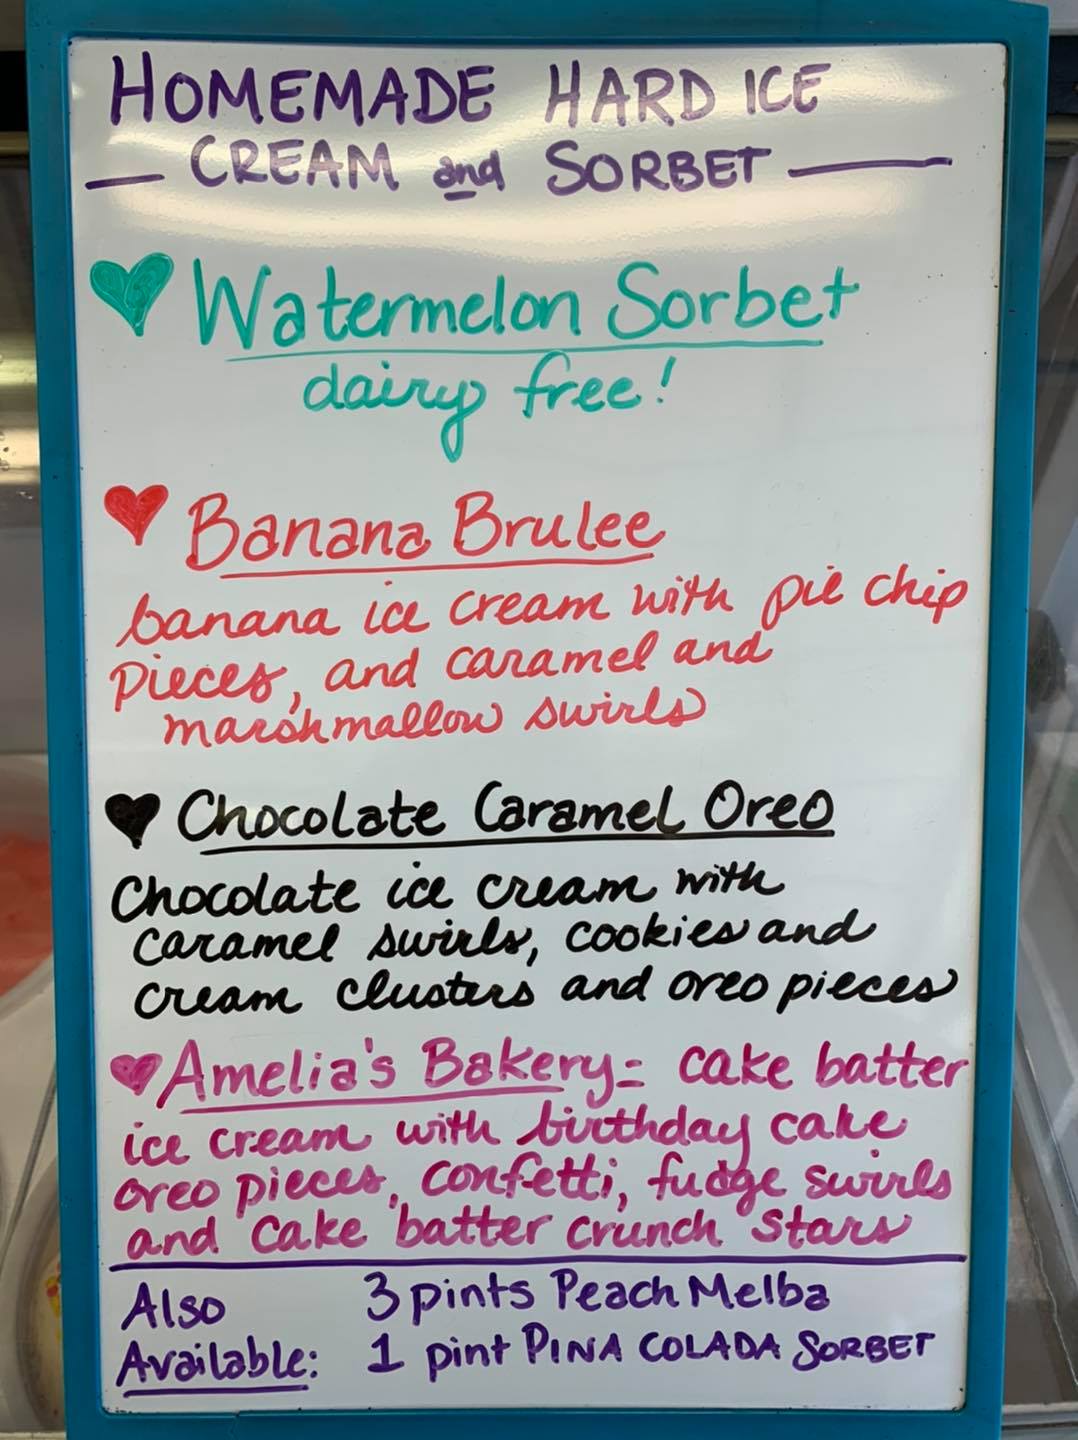 HOMEMADE HARD ICE
CREAM and SORBET
Watermelon Sorbet
dairy free!
Banana Brulee
banana ice cream with pie chip
pieces, and caramel and
marshmallow swirls
Chocolate Caramel Oreo
Chocolate ice cream with
caramel swirls, cookies and
cream clusters and oreo pieces
Amelia's Bakery= cake batter
ice cream with birthday cake
oreo pieces, confetti, fudge swirls
and cake batter crunch stars
Also 3 pints Peach Melba
Available: 1 pint PINA COLADA SORBET